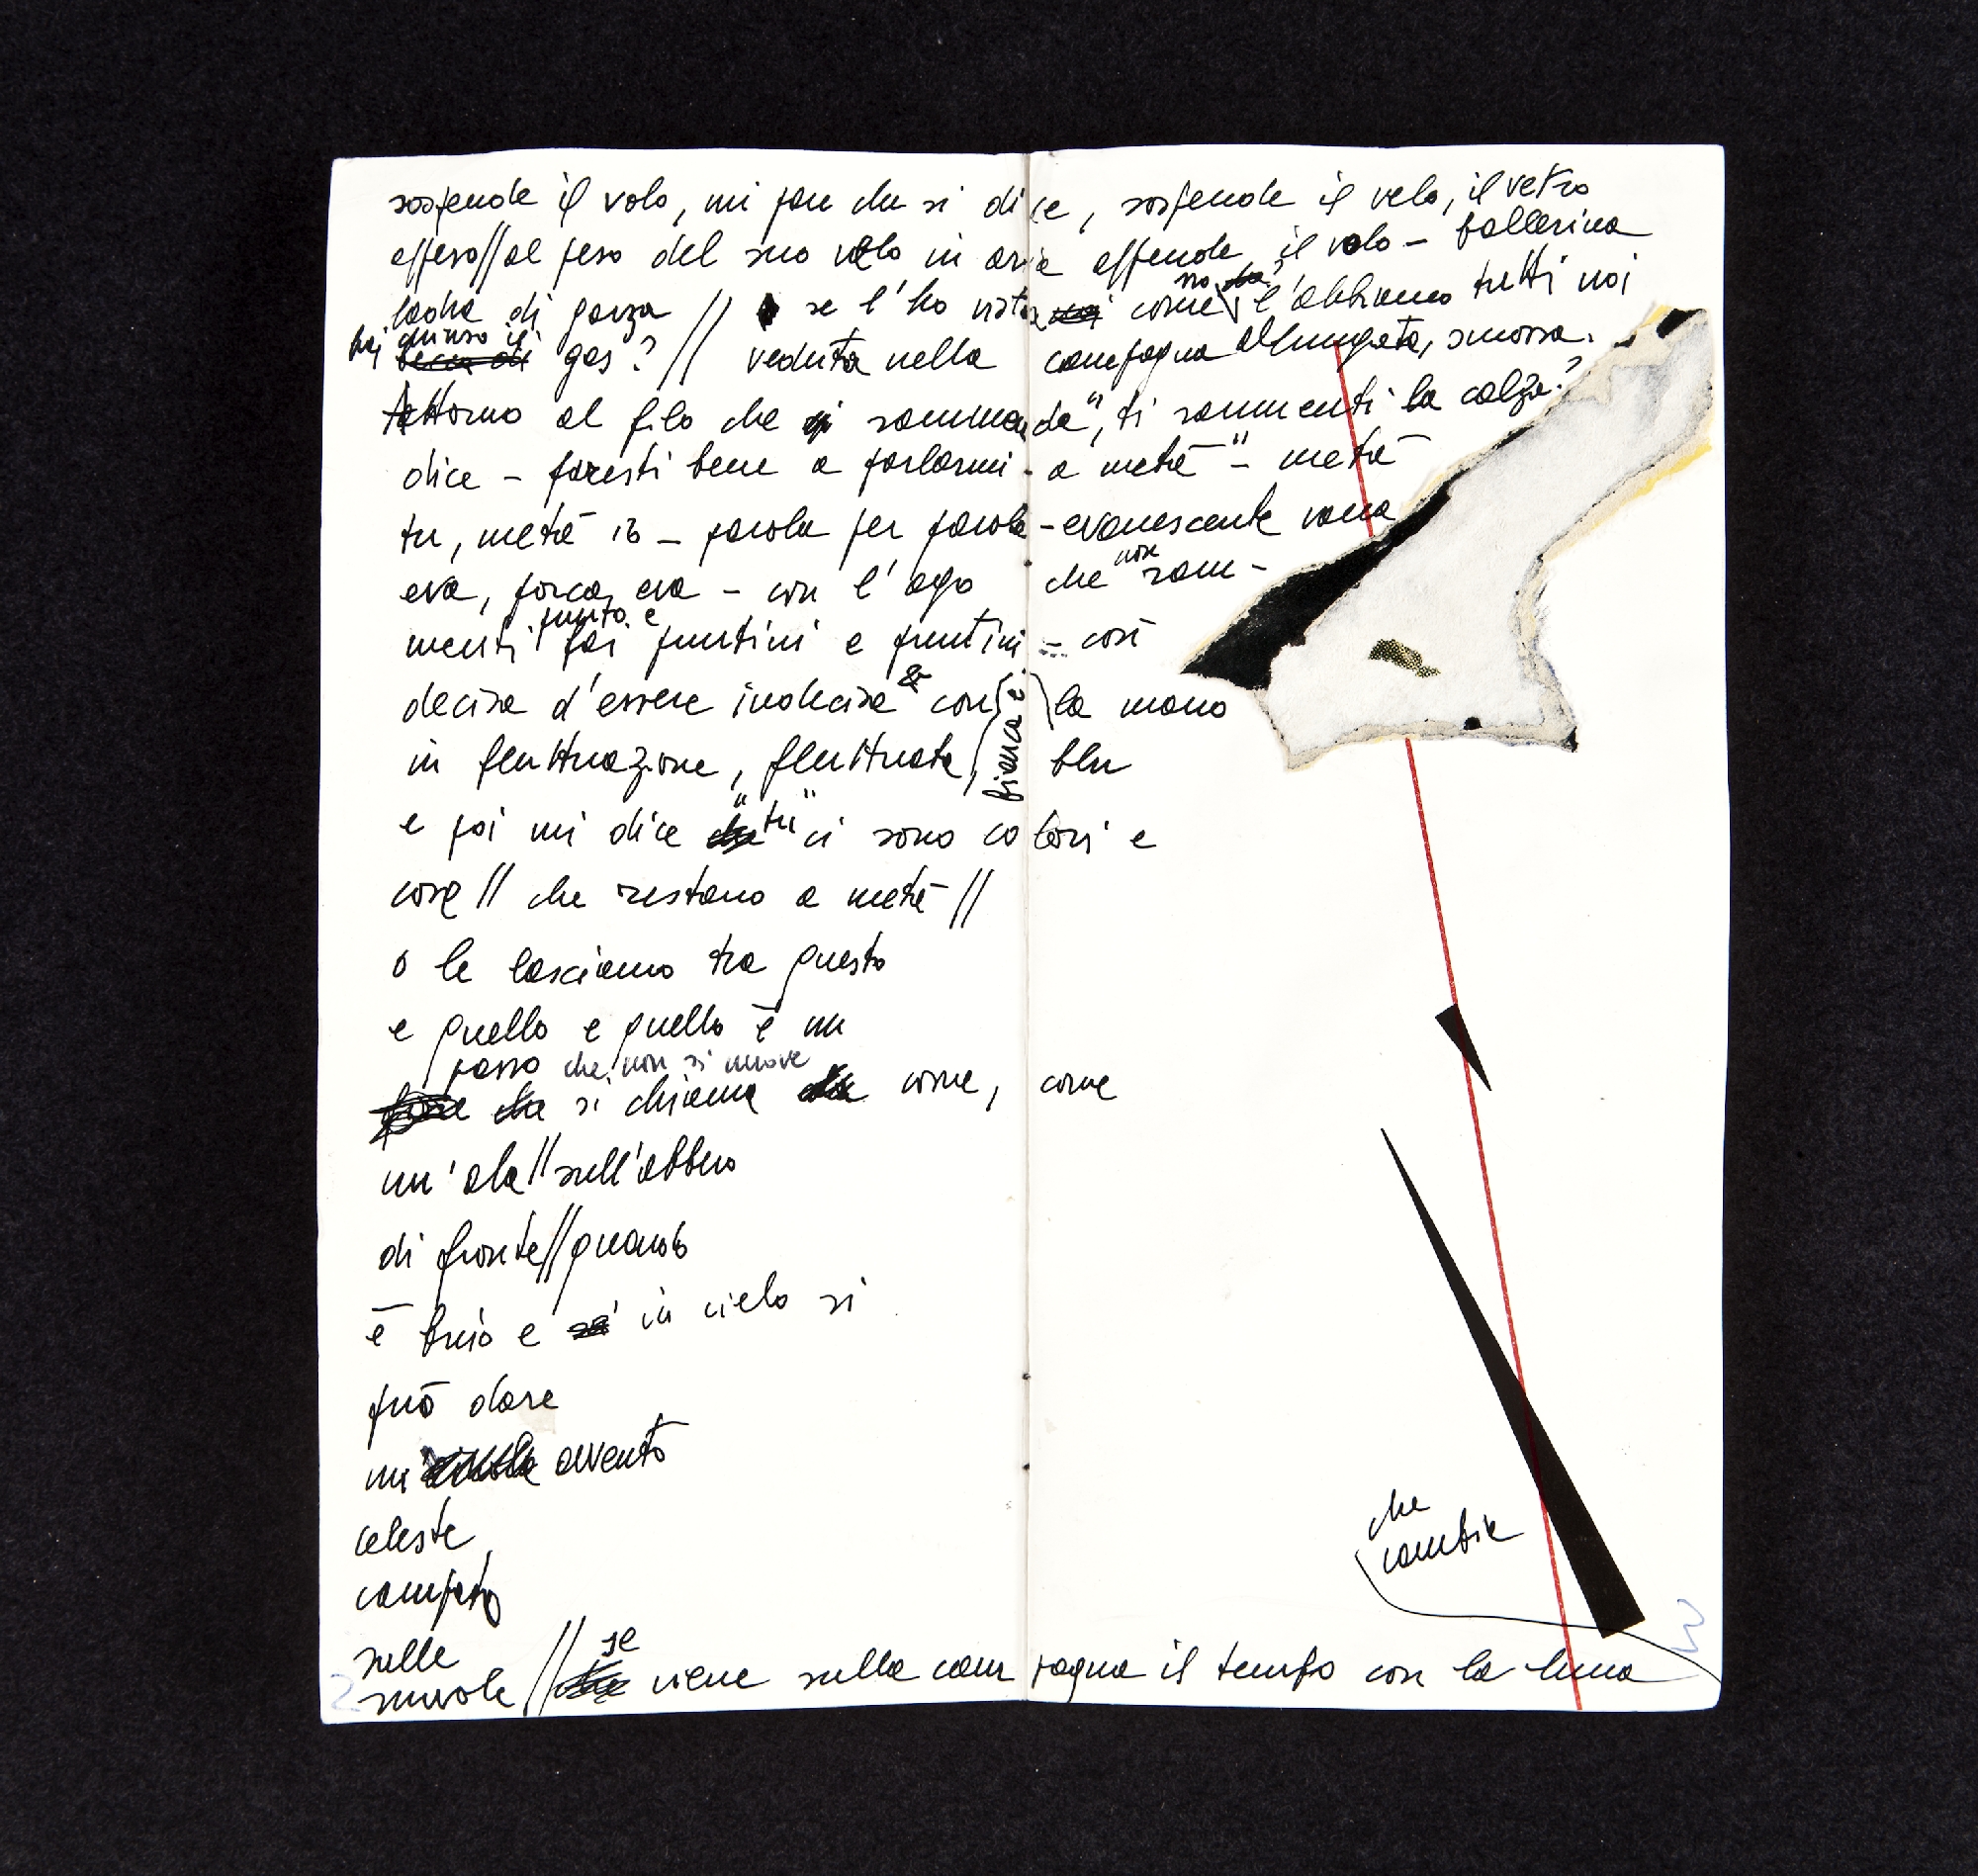 sospende il volo, mi pare che si dice, sospende il velo, il vetro
appeso//al peso del suo velo in aria appende il volo - ballerina
ladra di garza // se l'ho vista come no l'abbiamo tutti noi
hai chiuso il gas? // veduta nella campagna allungata, smossa.
Attorno al filo che si rammenda", ti rammenti la calza?
dice - faresti bene a parlarmi - a metà" - metà
tu, metà io - parola per parola - evanescente vana
eva, porca eva - con l'ago che non ram-
menti punto e fai puntini e puntini - così
decisa d'essere indecisa & con bianca e la mano
in fluttuazione, fluttuata, blu
e poi mi dice "tu" ci sono colori e
cose // che restano a metà //
o le lasciamo tra questo
e quello e quello è un
passo che non si muove
si chiama come, come
un'ala//sull'abbino
di fronte//quando
è buio e in cielo si
può dare
un avvento
celeste
campato
sulle
nuvole // se viene sulla campagna il tempo con la luna
che
cambia
2
3